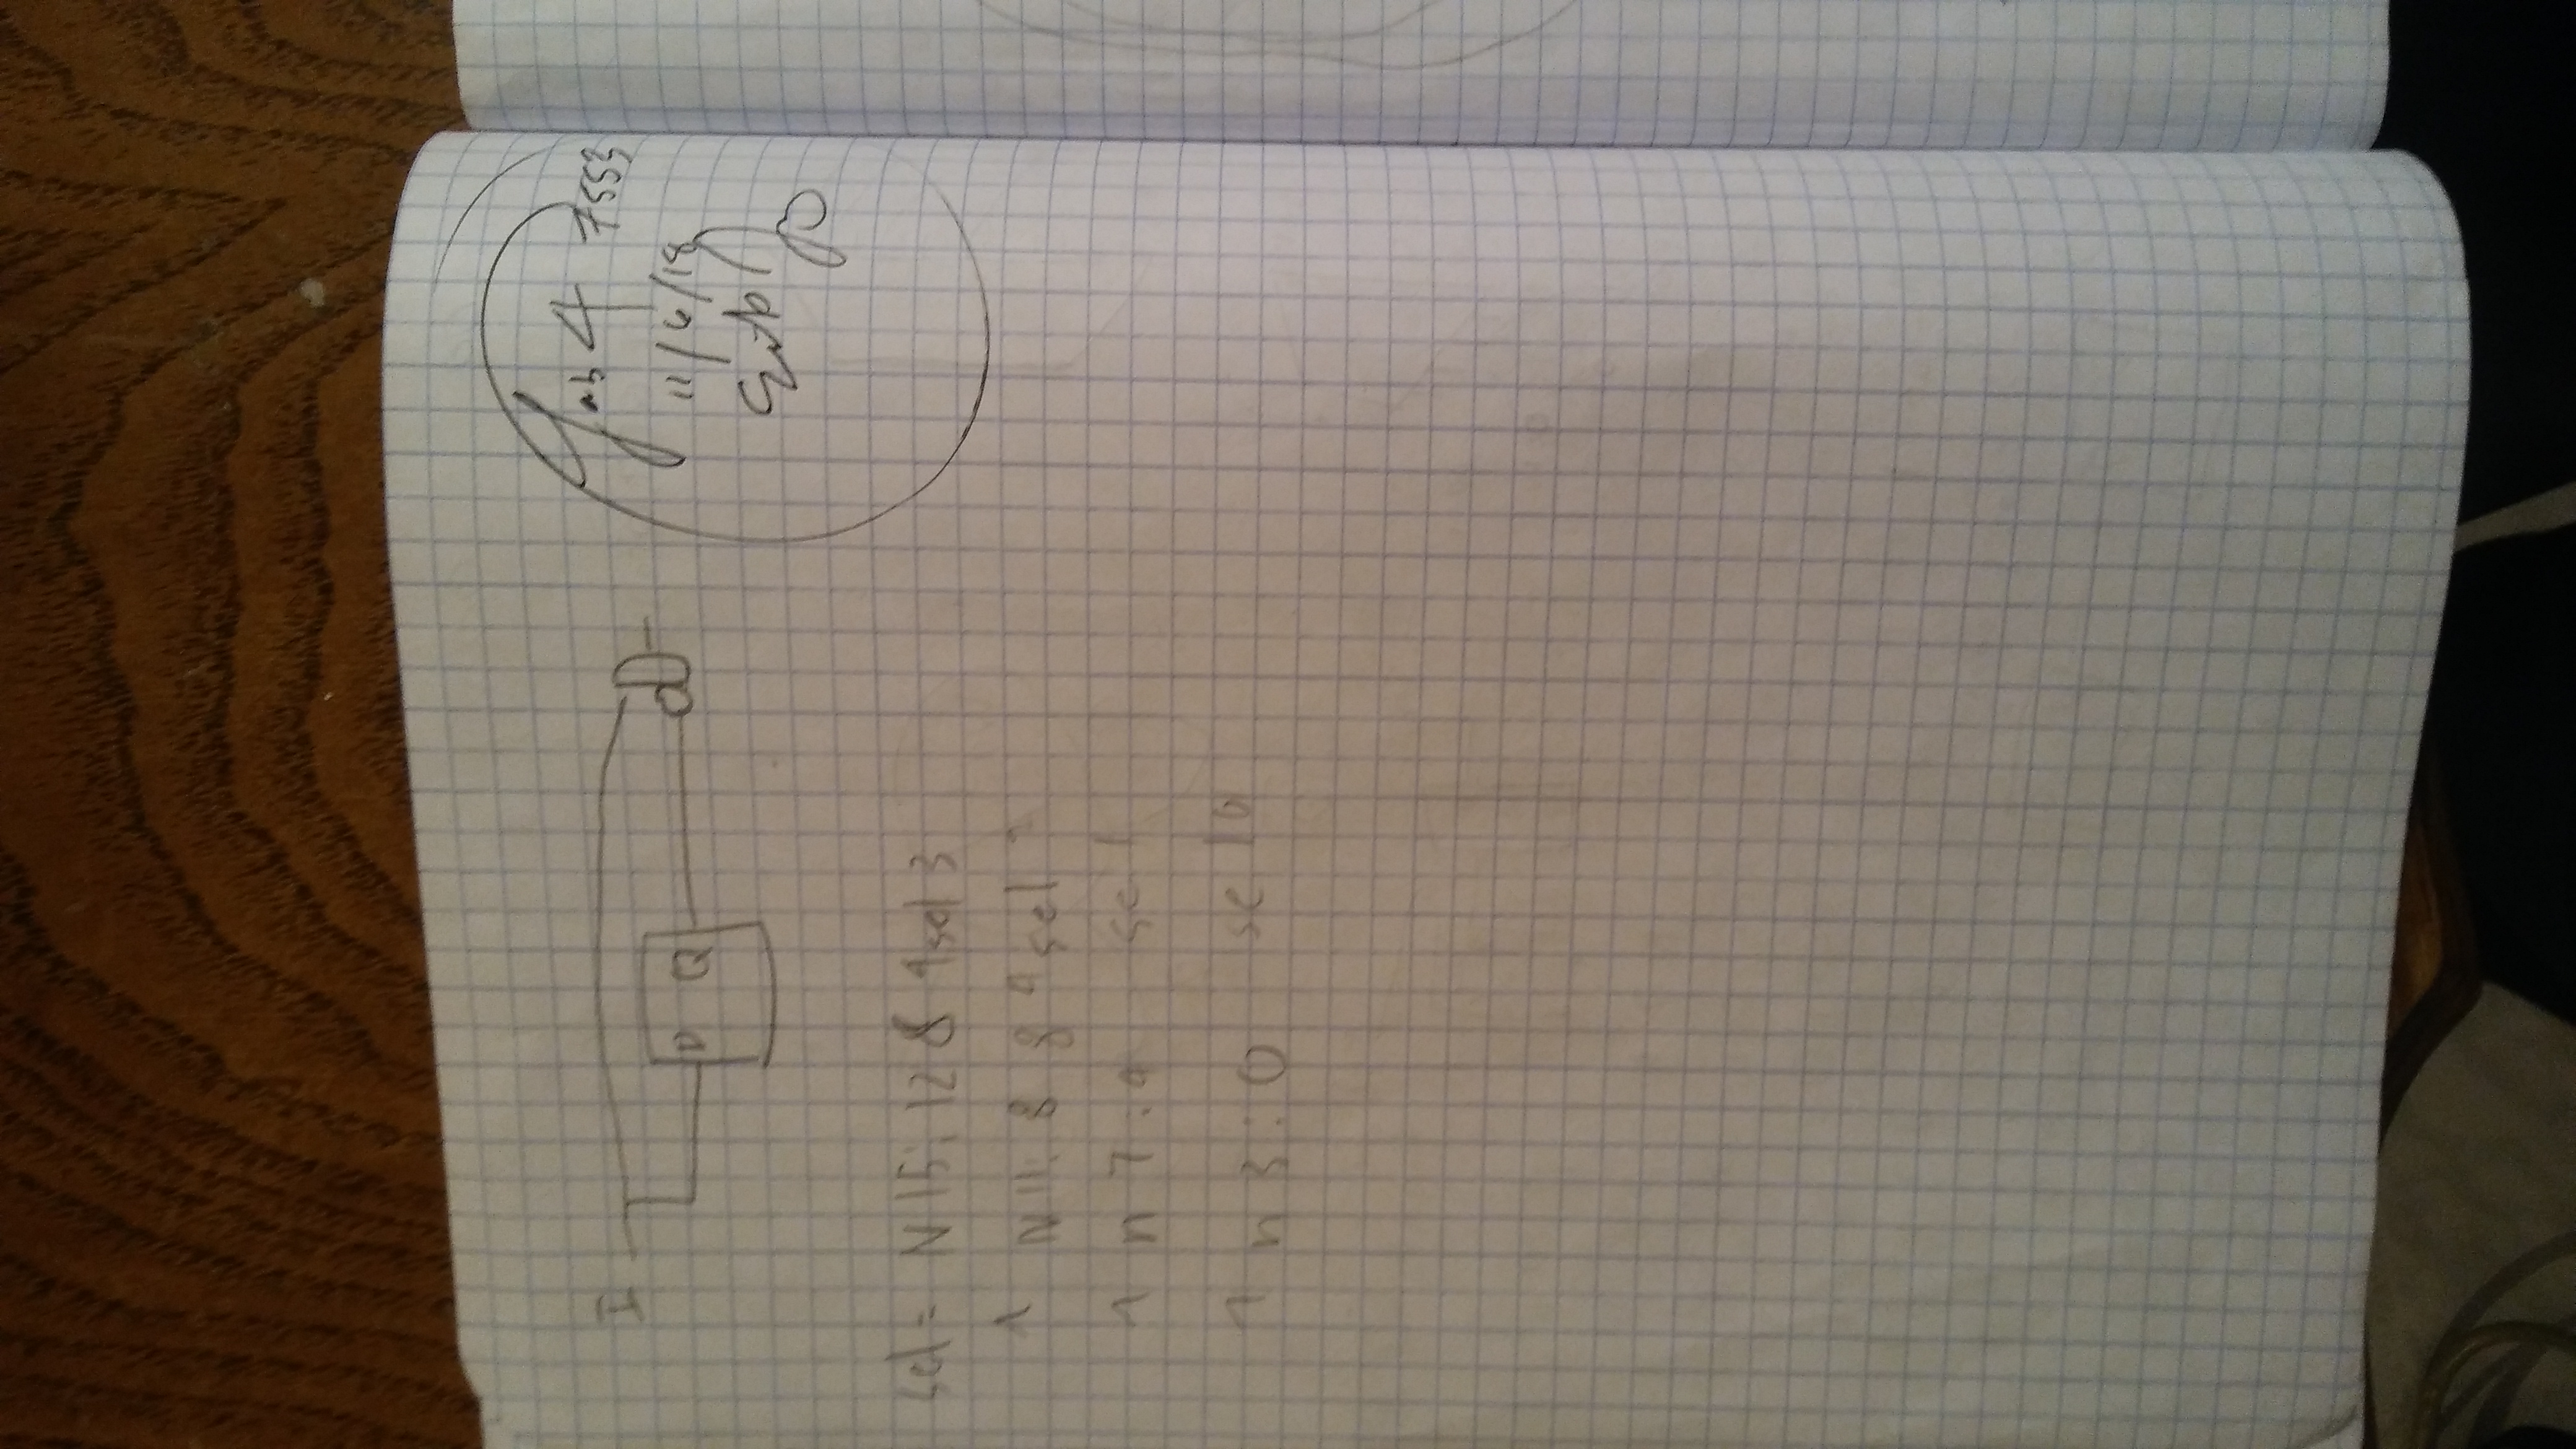 I
D Q
Lab 4 7553
11/6/18
sel = N 15:12 & 4sel 3
^ N 11:8 & 4sel 2
^ n 7:4 sel 1
^ n 3:0 sel 0